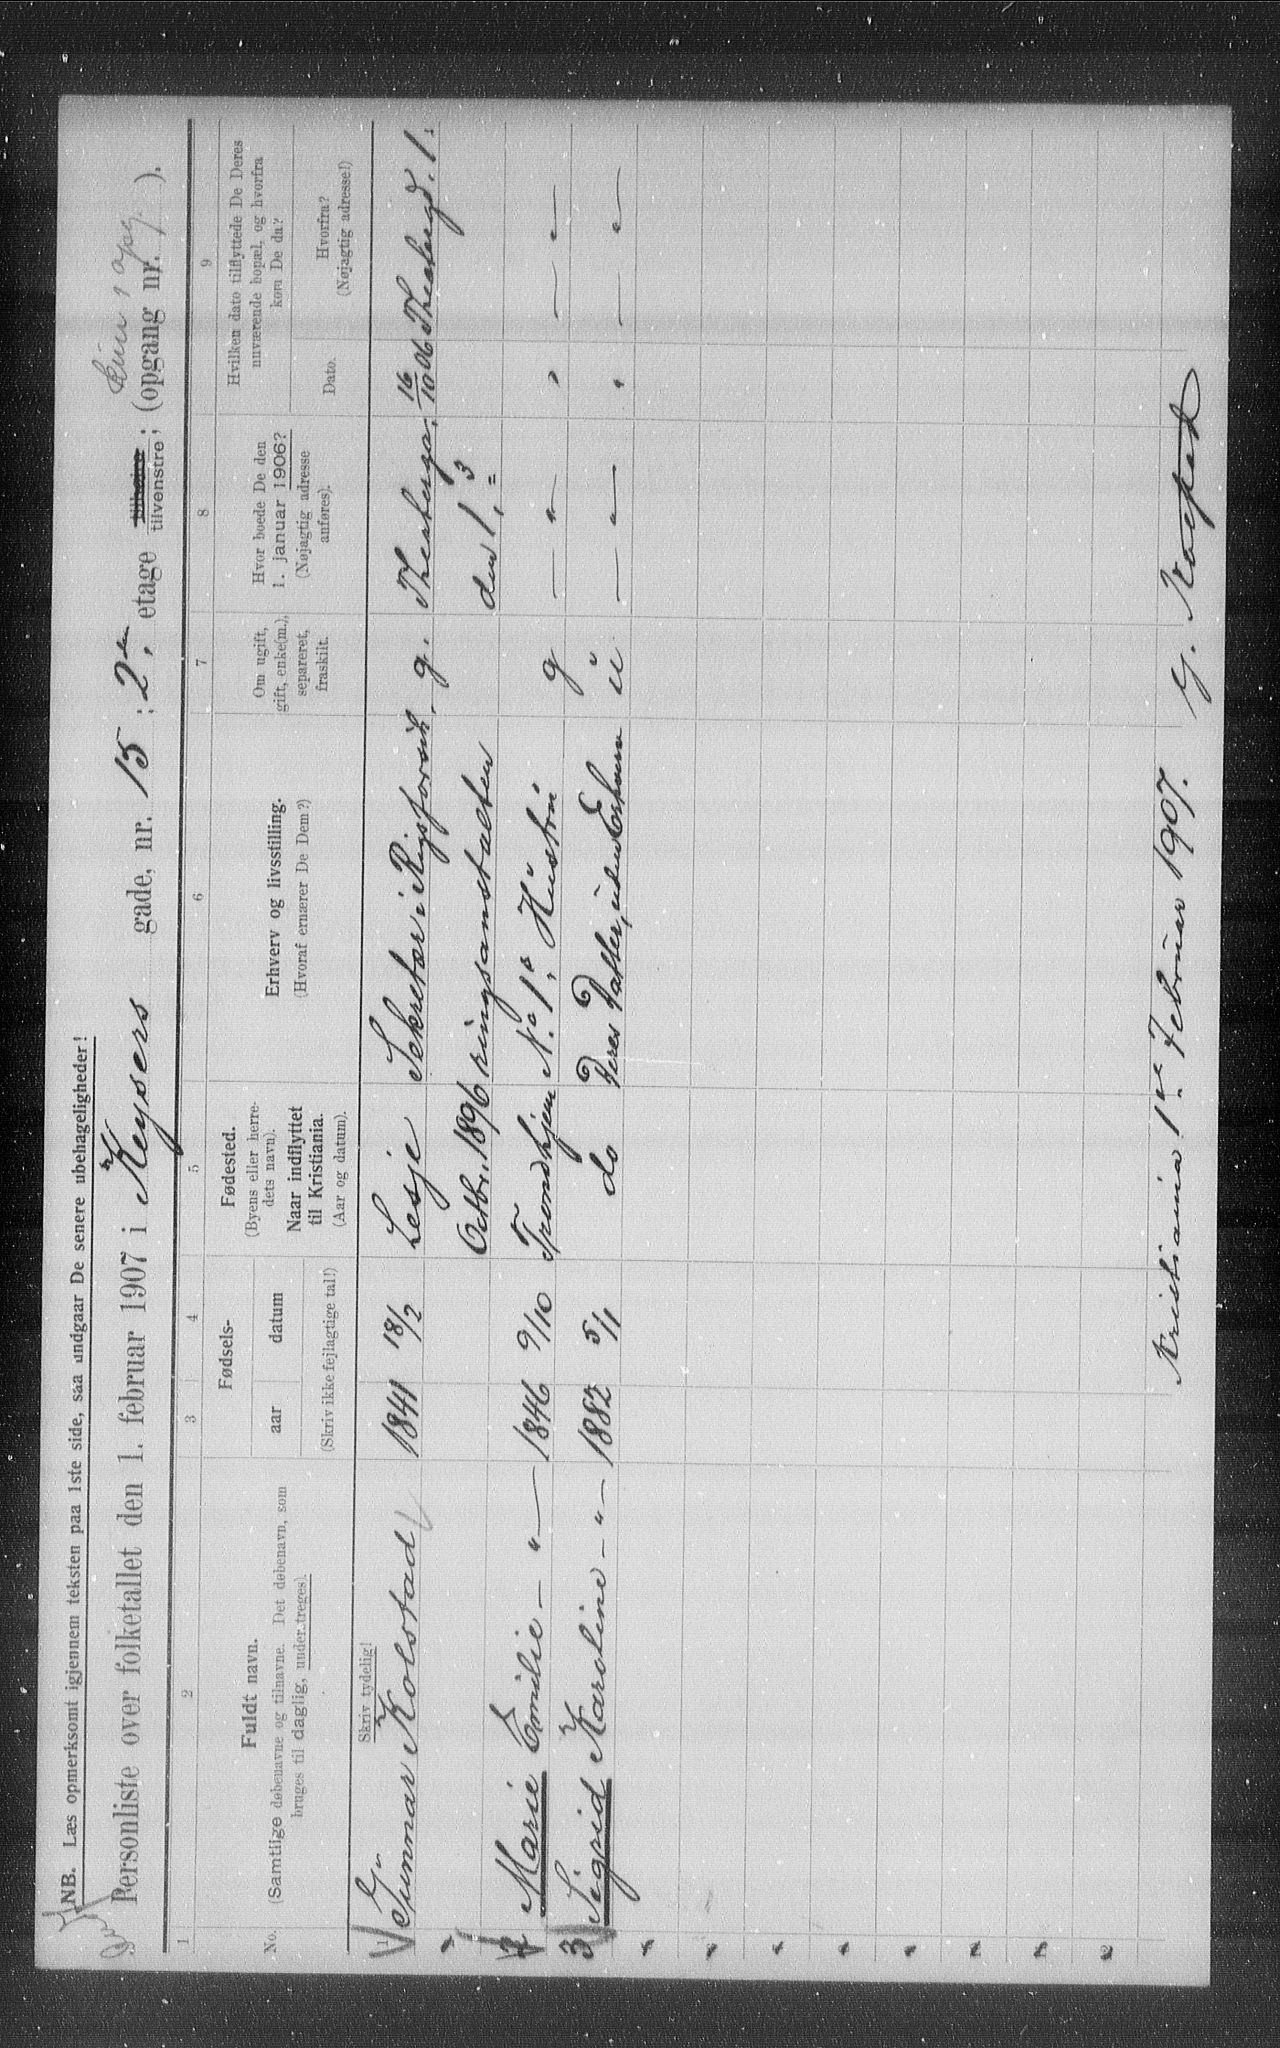 NB. Læs opmerksomt igjennem teksten paa 1ste side, saa undgaar De senere ubehageligheder!
kun 1 opg.
Personliste over folketallet den 1. februar 1907 i Keysers gade, nr. 15; 2en etage tilhøire tilvenstre; (opgang nr. ).
1 2 3 4 5 6 7 8 9
No.
Fuldt navn.
(Samtlige døbenavne og tilnavne. Det døbenavn, som
bruges til daglig, understreges).
Fødsels-
aar datum
(Skriv ikke fejlagtige tal!)
Fødested.
(Byens eller herre-
dets navn).
Naar indflyttet
til Kristiania.
(Aar og datum).
Erhverv og livsstilling.
(Hvoraf ernærer De Dem?)
Om ugift,
gift, enke(m.),
separeret,
fraskilt.
Hvor boede De den
1. januar 1906?
(Nøjagtig adresse
anføres).
Hvilken dato tilflyttede De Deres
nuværende bopæl, og hvorfra
kom De da?
Dato.
Hvorfra?
(Nøjagtig adresse!)
Skriv tydelig!
1 Gunnar Kolstad 1841 18/2 Lesje Sekretær i Rigsforsik- g. 16/10 06
Octbr. 1896 ringsanstalten
2 Marie Emilie — " — 1846 9/10 Trondhjem No 1s Hustru g — " — " — " —
3 Sigrid Karoline — " — 1882 5/1 do Deres Datter, uden Erhverv u — " — " — " —
Kristiania 1ste Februar 1907.
G. Kolstad